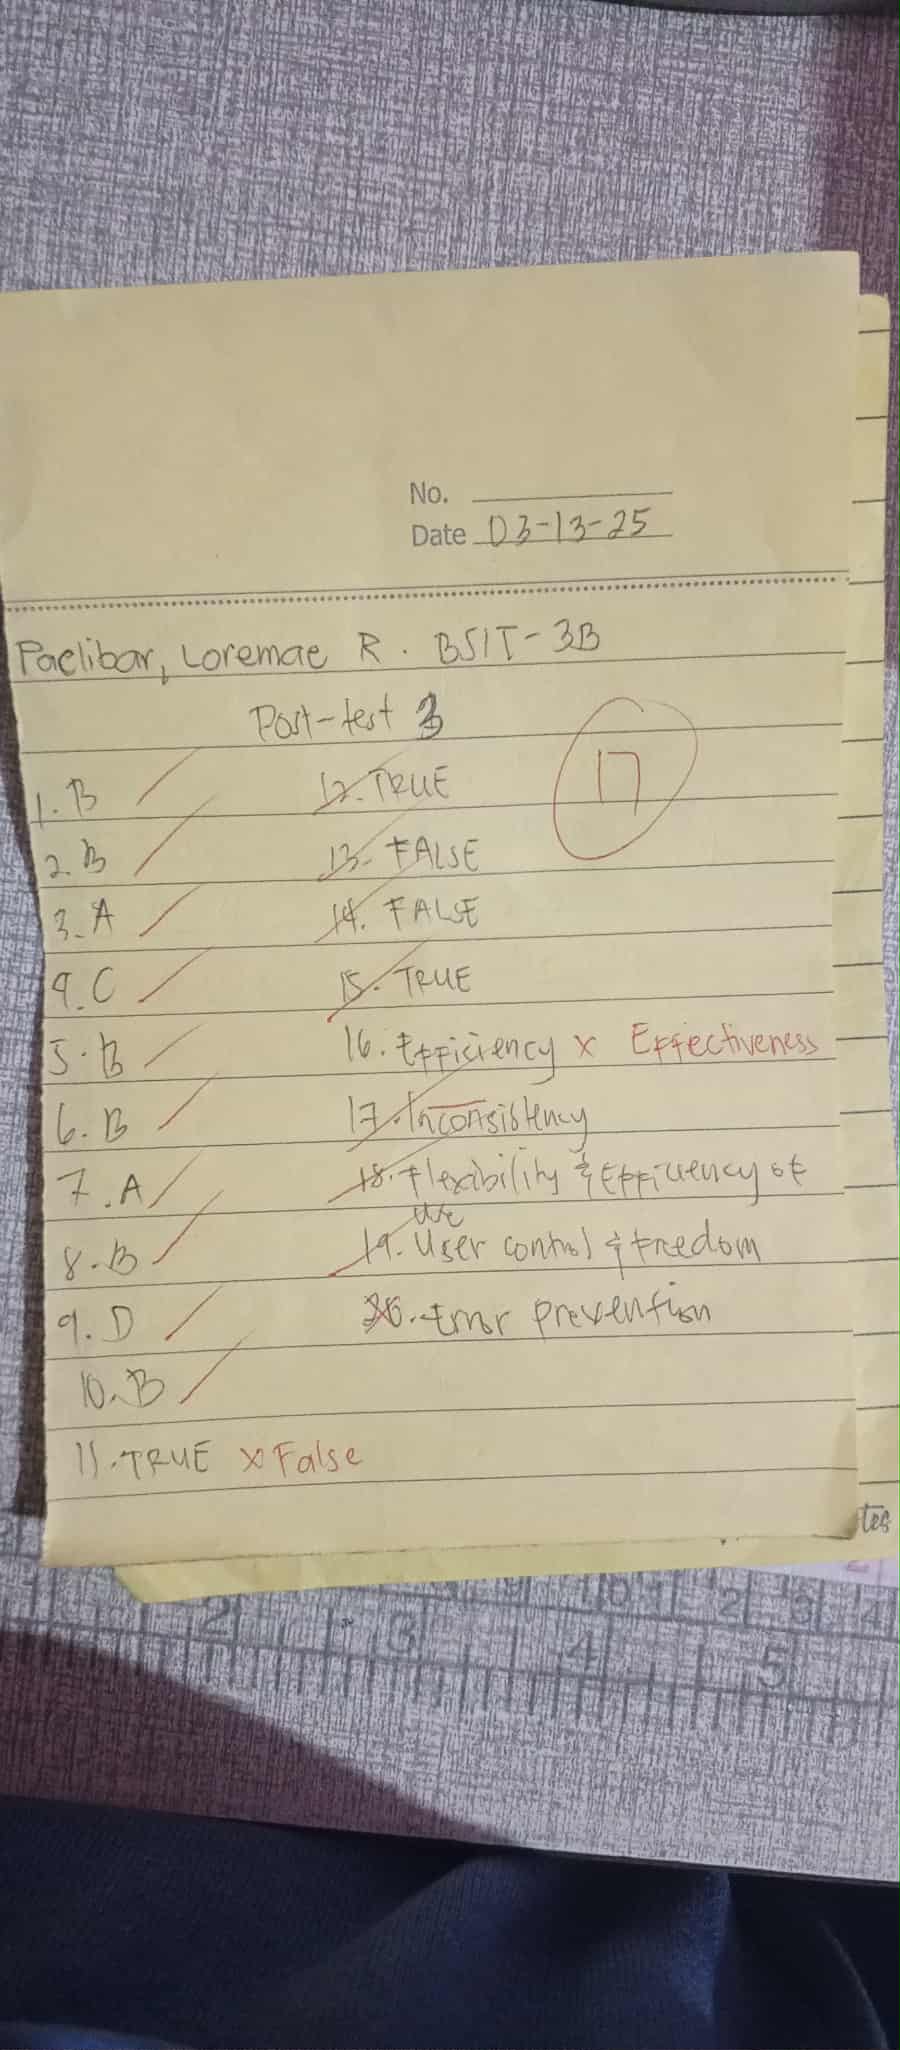 No.
Date 03-13-25
Paclibar, Loremae R. BSIT-3B
Post-test 3
17
1. B
2. B
3. A
4. C
5. B
6. B
7. A
8. B
9. D
10. B
11. TRUE x False
12. TRUE
13. FALSE
14. FALSE
15. TRUE
16. Efficiency x Effectiveness
17. Inconsistency
18. Flexibility & Efficiency of
Use
19. User control & freedom
20. Error prevention
tes
2 3 4 5